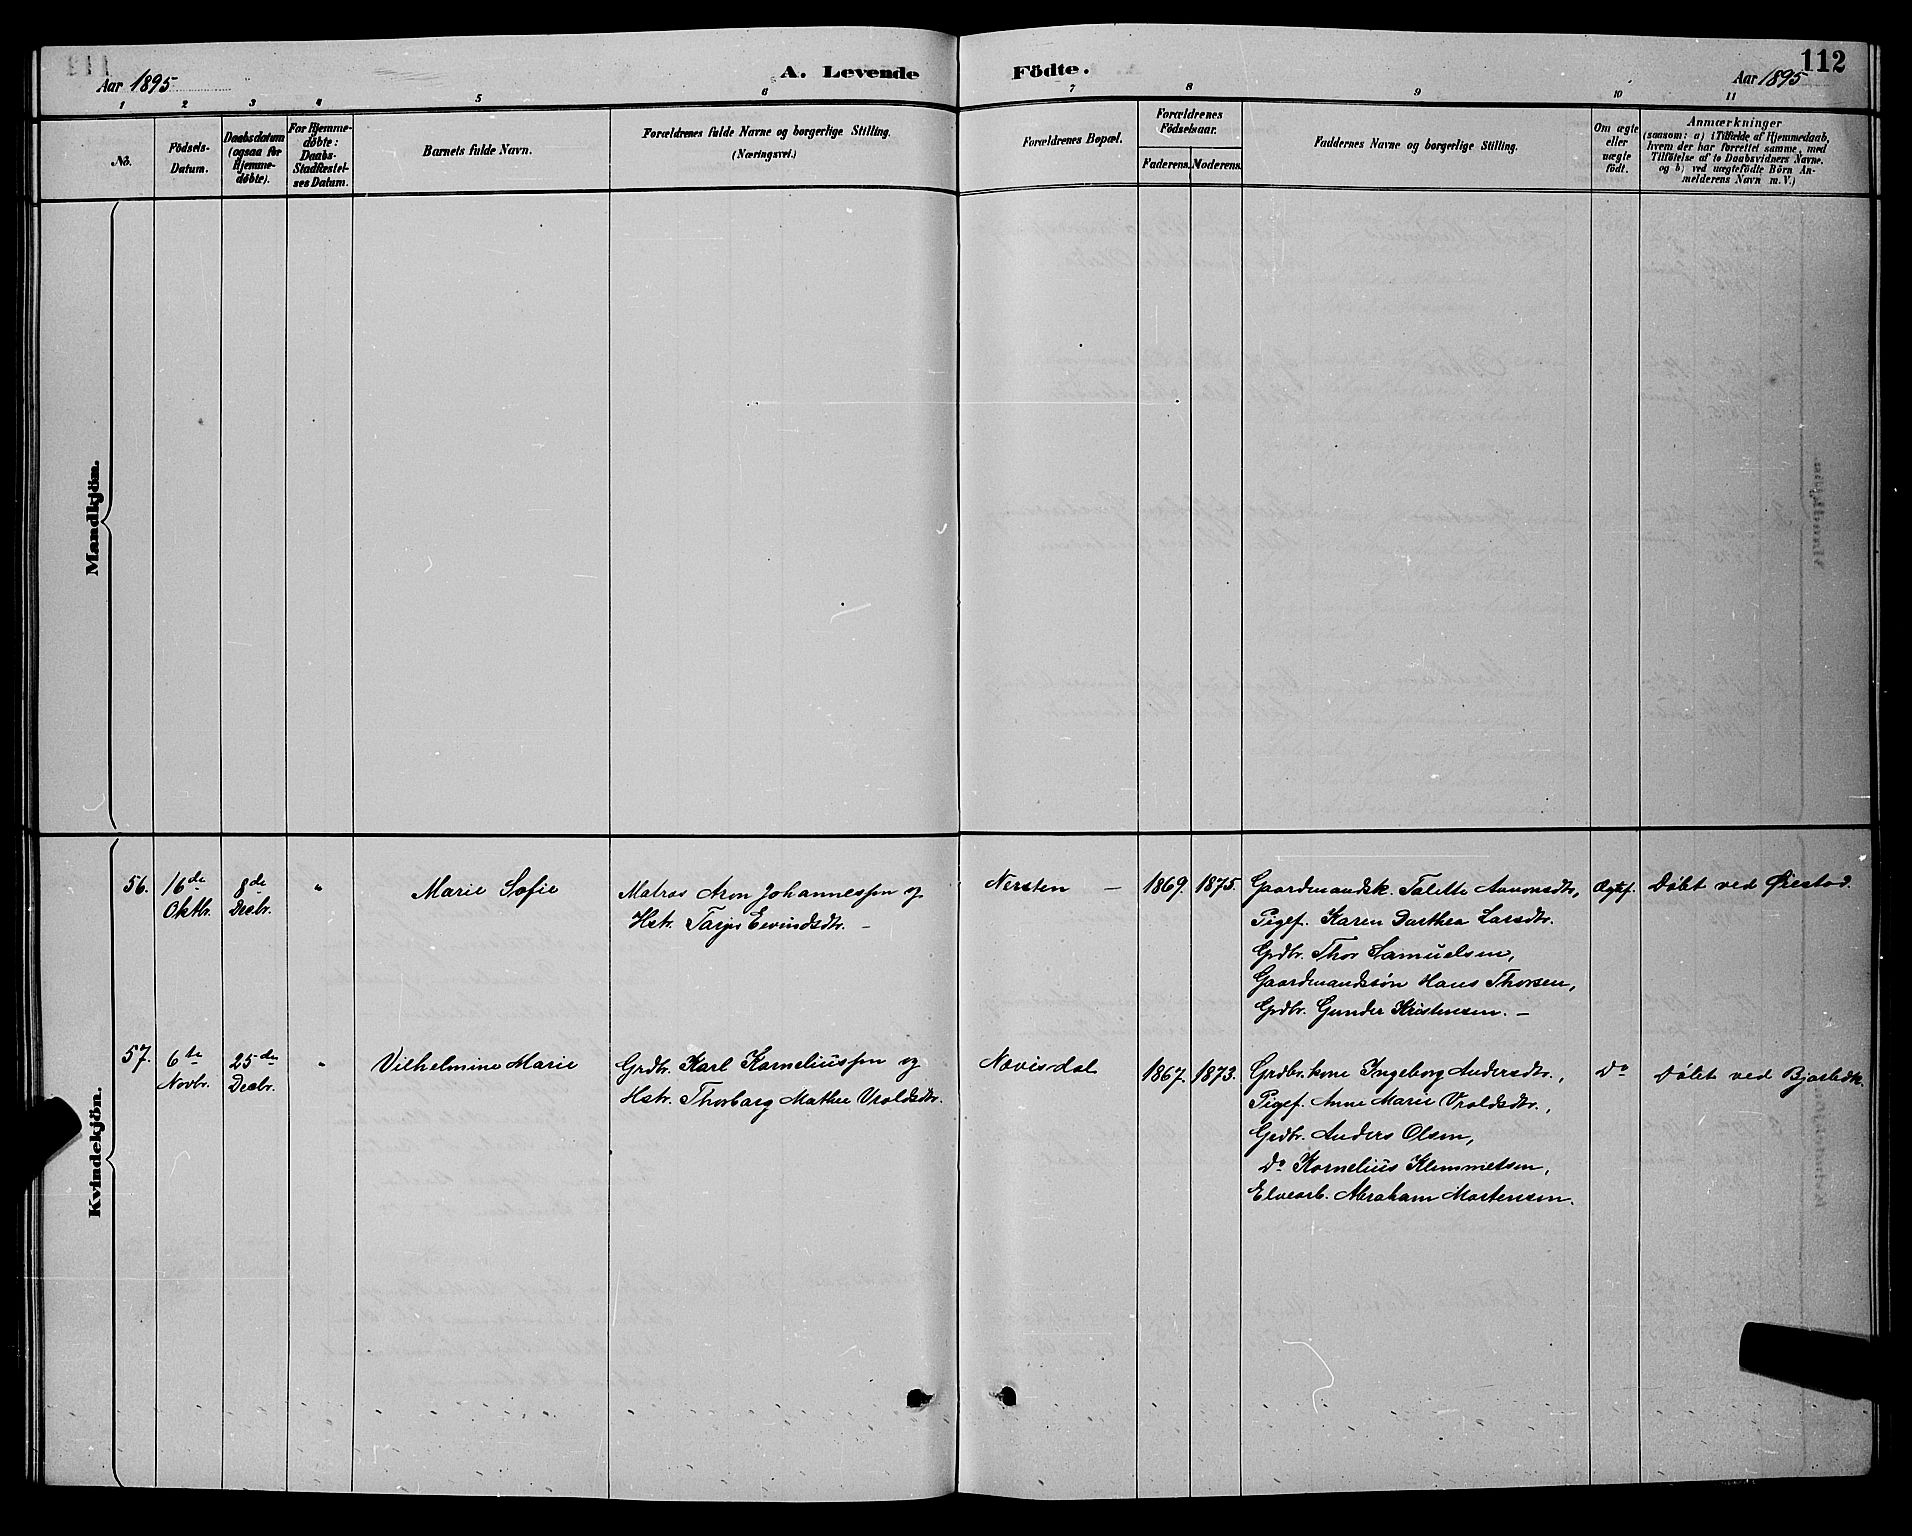 112
Aar 1895
A. Levende Födte.
Aar 1895
1 2 3 4 5 6 7 8 9 10 11
No.
Födsels-
Datum.
Daabsdatum
(ogsaa for
Hjemme-
døbte).
For Hjemme-
døbte:
Daabs-
Stadfæstel-
ses Datum.
Barnets fulde Navn.
Forældrenes fulde Navne og borgerlige Stilling.
(Næringsvei.)
Forældrenes Bopæl.
Forældrenes
Födselsaar.
Faderens. Moderens.
Faddernes Navne og borgerlige Stilling.
Om ægte
eller
uægte
født.
Anmærkninger
(saasom: a) i Tilfælde af Hjemmedaab,
hvem der har forrettet samme, med
Tilföielse af to Daabsvidners Navne.
og b) ved uægtefödte Börn An-
melderens Navn m. V.)
Mandkjön.
Kvindekjön.
56. 16de Oktbr. 8de Decbr. " Marie Sofie
Matros Aron Johannessen og
Hstr. Tarjer Eivindsdtr. —
Nersten — 1869. 1875.
Gaardmandsk. Talette Aanonsdtr,
Pigef. Karen Dorthea Larsdtr.
Grdbr. Thor Samuelsen,
Gaardmandssön Hans Thorsen,
Grdbr. Gunder Kristensen. —
Ægtef. Döbt ved Örestad.
57. 6te Novbr. 25de Decbr. " Vilhelmine Marie
Grdbr. Karl Korneliussen og
Hstr. Thorbarg Mathea Vroldsdtr.
Nævisdal 1867. 1873.
Grdbr.kone Ingeborg Andersdtr.,
Pigef. Anne Marie Vroldsdtr.,
Grdbr. Anders Olsen,
Do Kornelius Klemmetsen,
Elvearb. Abraham Mortensen.
Do Döbt ved Bjorbæk.